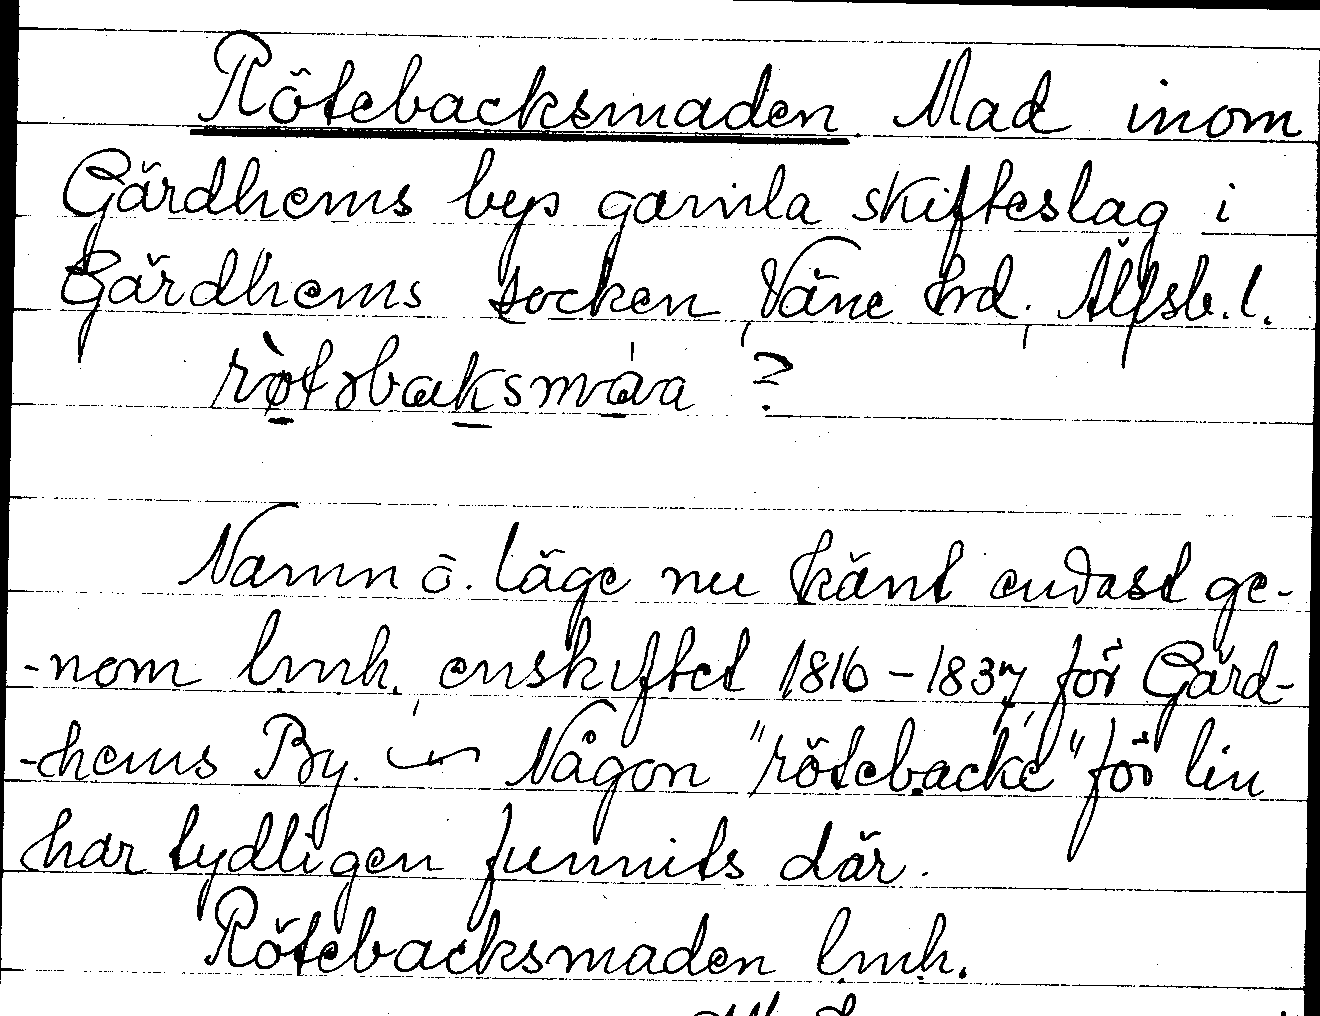 Rötebacksmaden. Mad inom
Gärdhems bys gamla skifteslag i
Gärdhems socken, Väne hrd, Älfsb. l.
rø̀təbaksmáa ?
Namn o. läge nu känt endast ge-
-nom lmh. enskiftet 1816-1837, för Gärd-
-hems By. — Någon "rötebacke" för lin
har tydligen funnits där.
Rötebacksmaden lmh.